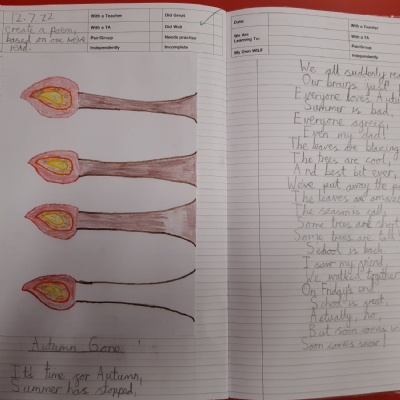 12.7.22
Create a poem,
based on one
With a Teacher
With a TA
Pair/Group
Independently
Did Great
Did Well
Needs practice
Incomplete
Autumn Gone
It's time for Autumn,
Summer has stopped,
Date:
We Are
Learning To:
My Own WILF
With a Teacher
With a TA
Pair/Group
Independently
We all suddenly
Our brains just
Everyone loves
Summer is bad,
Everyone agrees,
Even my dad!
The leaves are blazing
The trees are cool,
And best bit ever,
We've put away the
The leaves are
The season is
Some trees are short
Some trees are tall
School is back
I saw my friend,
We walked together
On Friday's end
School is great,
Actually, no,
But soon comes
Soon comes snow!